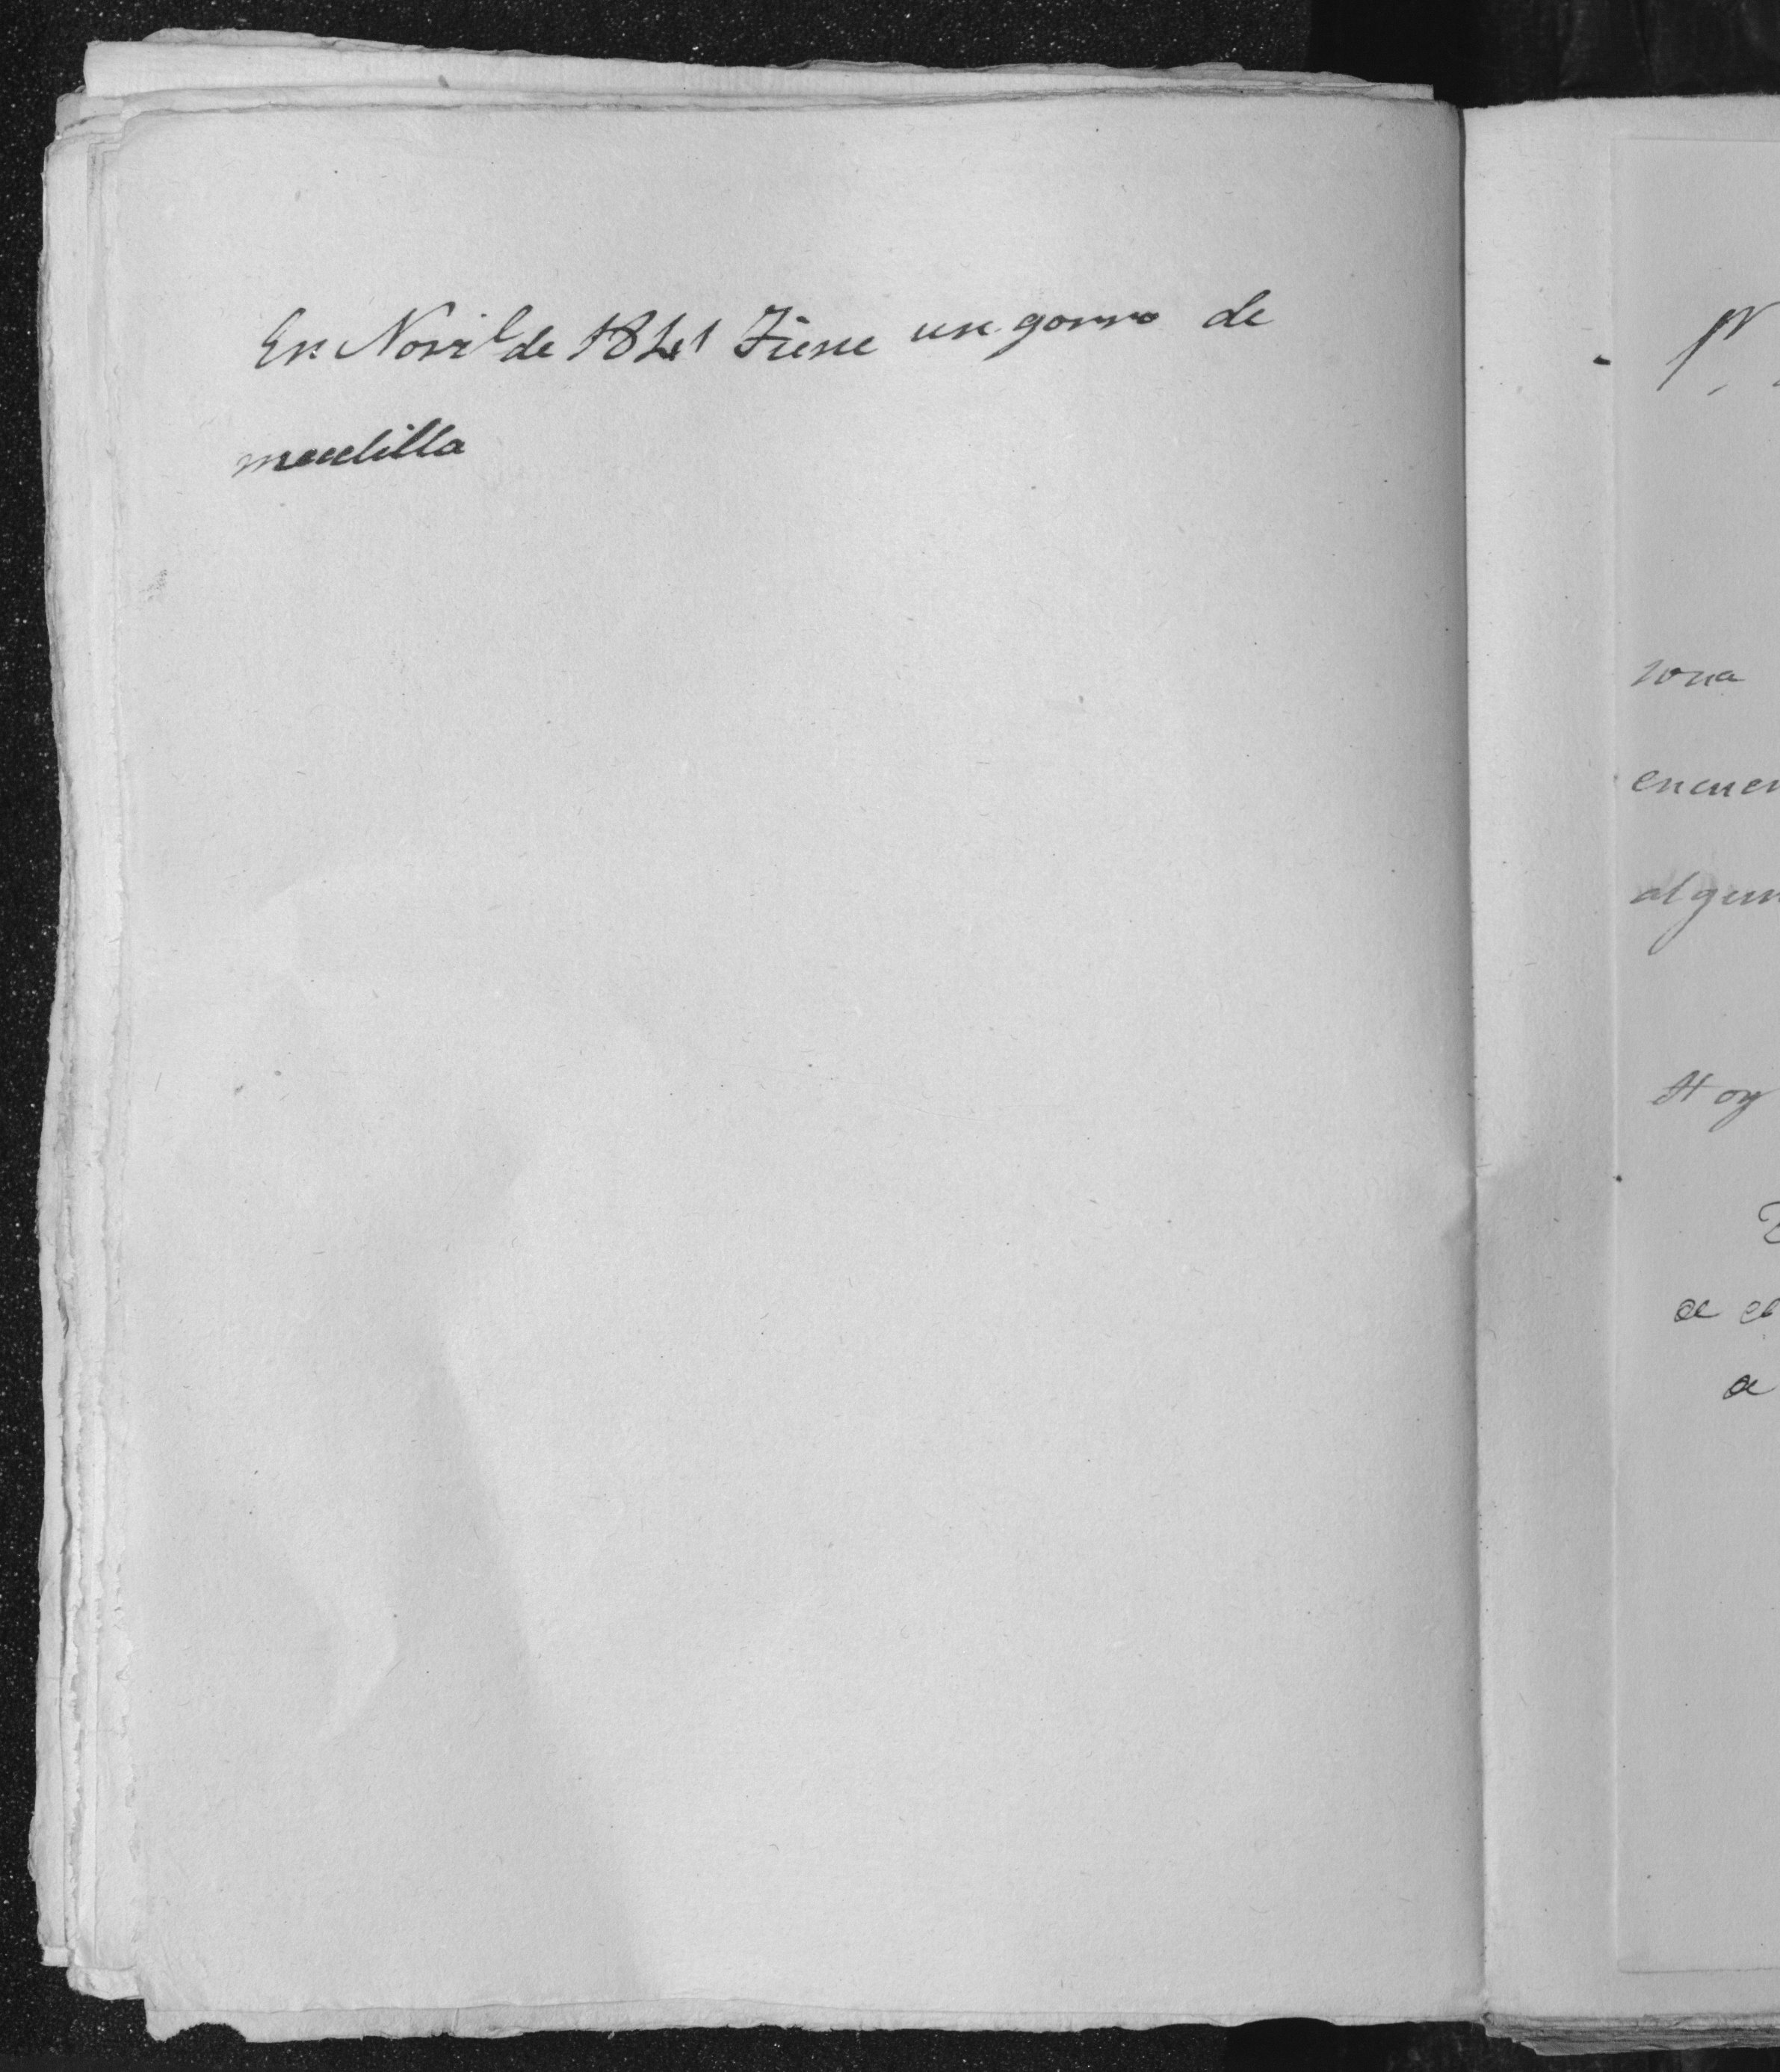 En Novi^l de 1841 Tiene un gorro de
medilla
zona
encuen
algun
Hoy
a